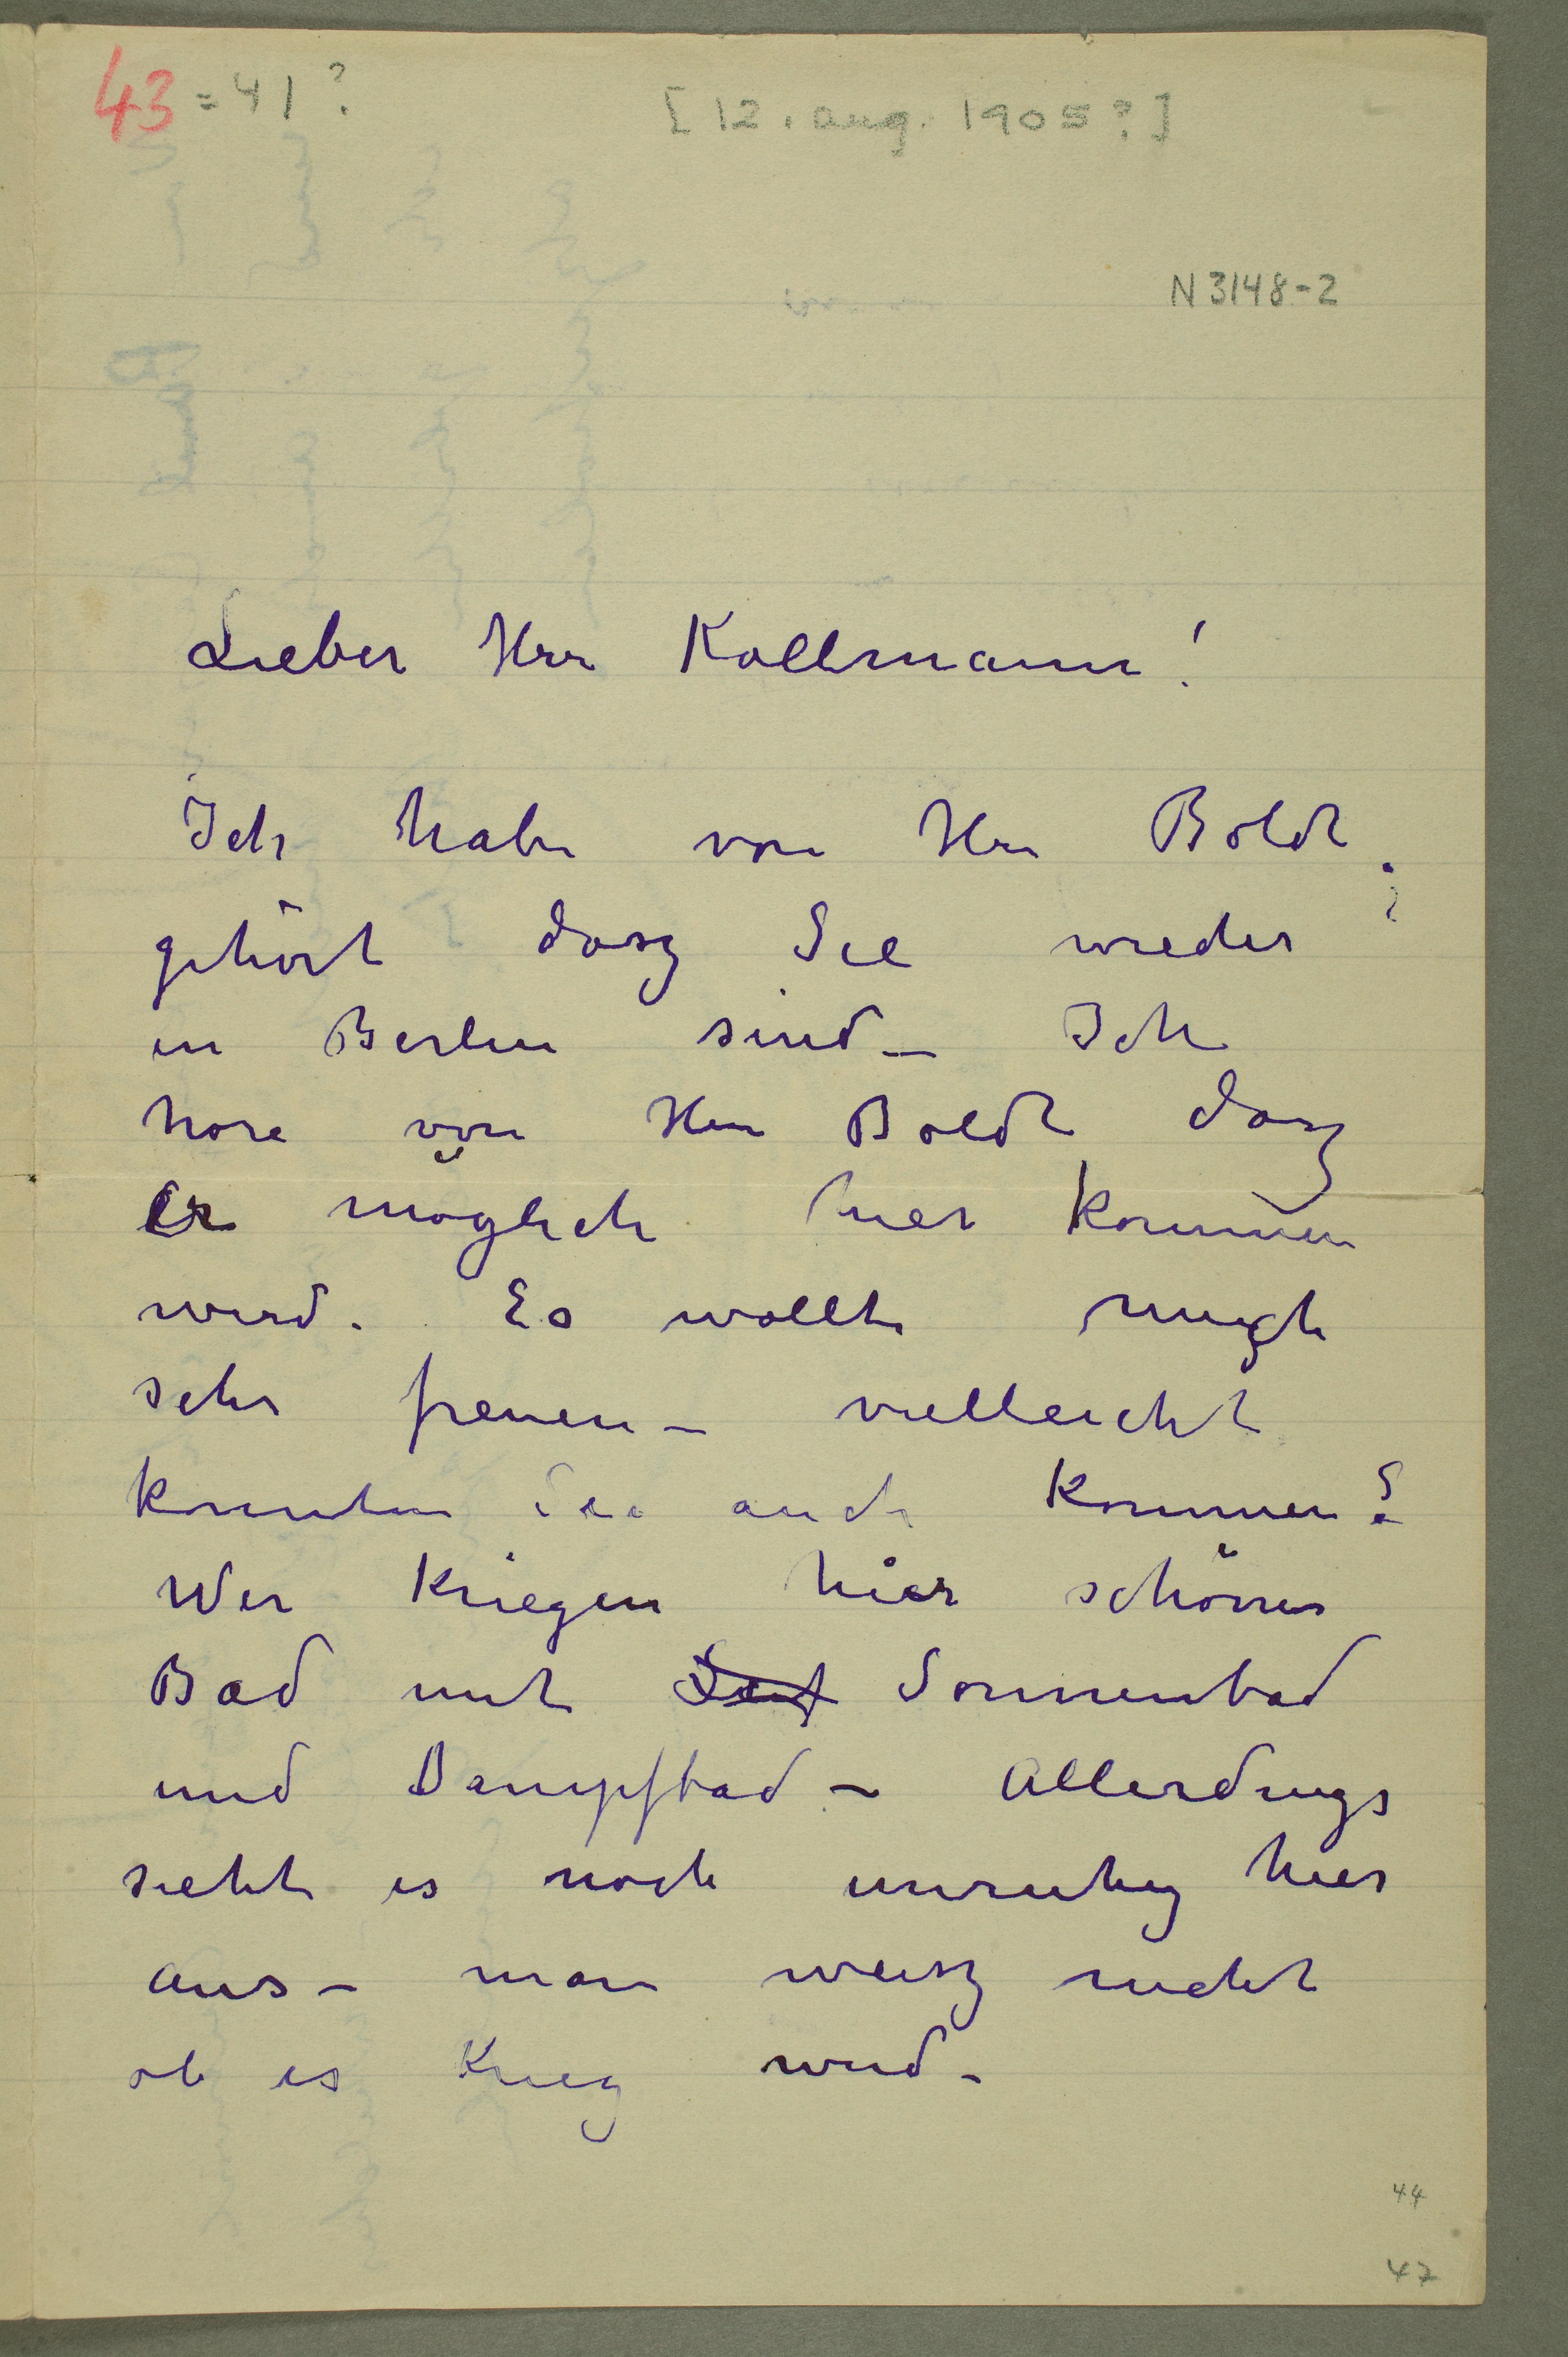 43 = 41?
[12. aug. 1905?]
N 3148-2
Lieber Herr Kollmann!
Ich habe von Hrn Boldt
gehört dasz Sie wieder
in Berlin sind – Ich
hore von Hrn Boldt dasz
er möglich hier kommen
wird. Es wollte mich
sehr freuen – vielleicht
konnten Sie auch kommen?
Wir kriegen hier schönes
Bad mit Luf Sonnenbad
und Dampfbad – Allerdings
sieht es noch unruhig hier
aus – man weisz nicht
ob es Krieg wird –
44
47